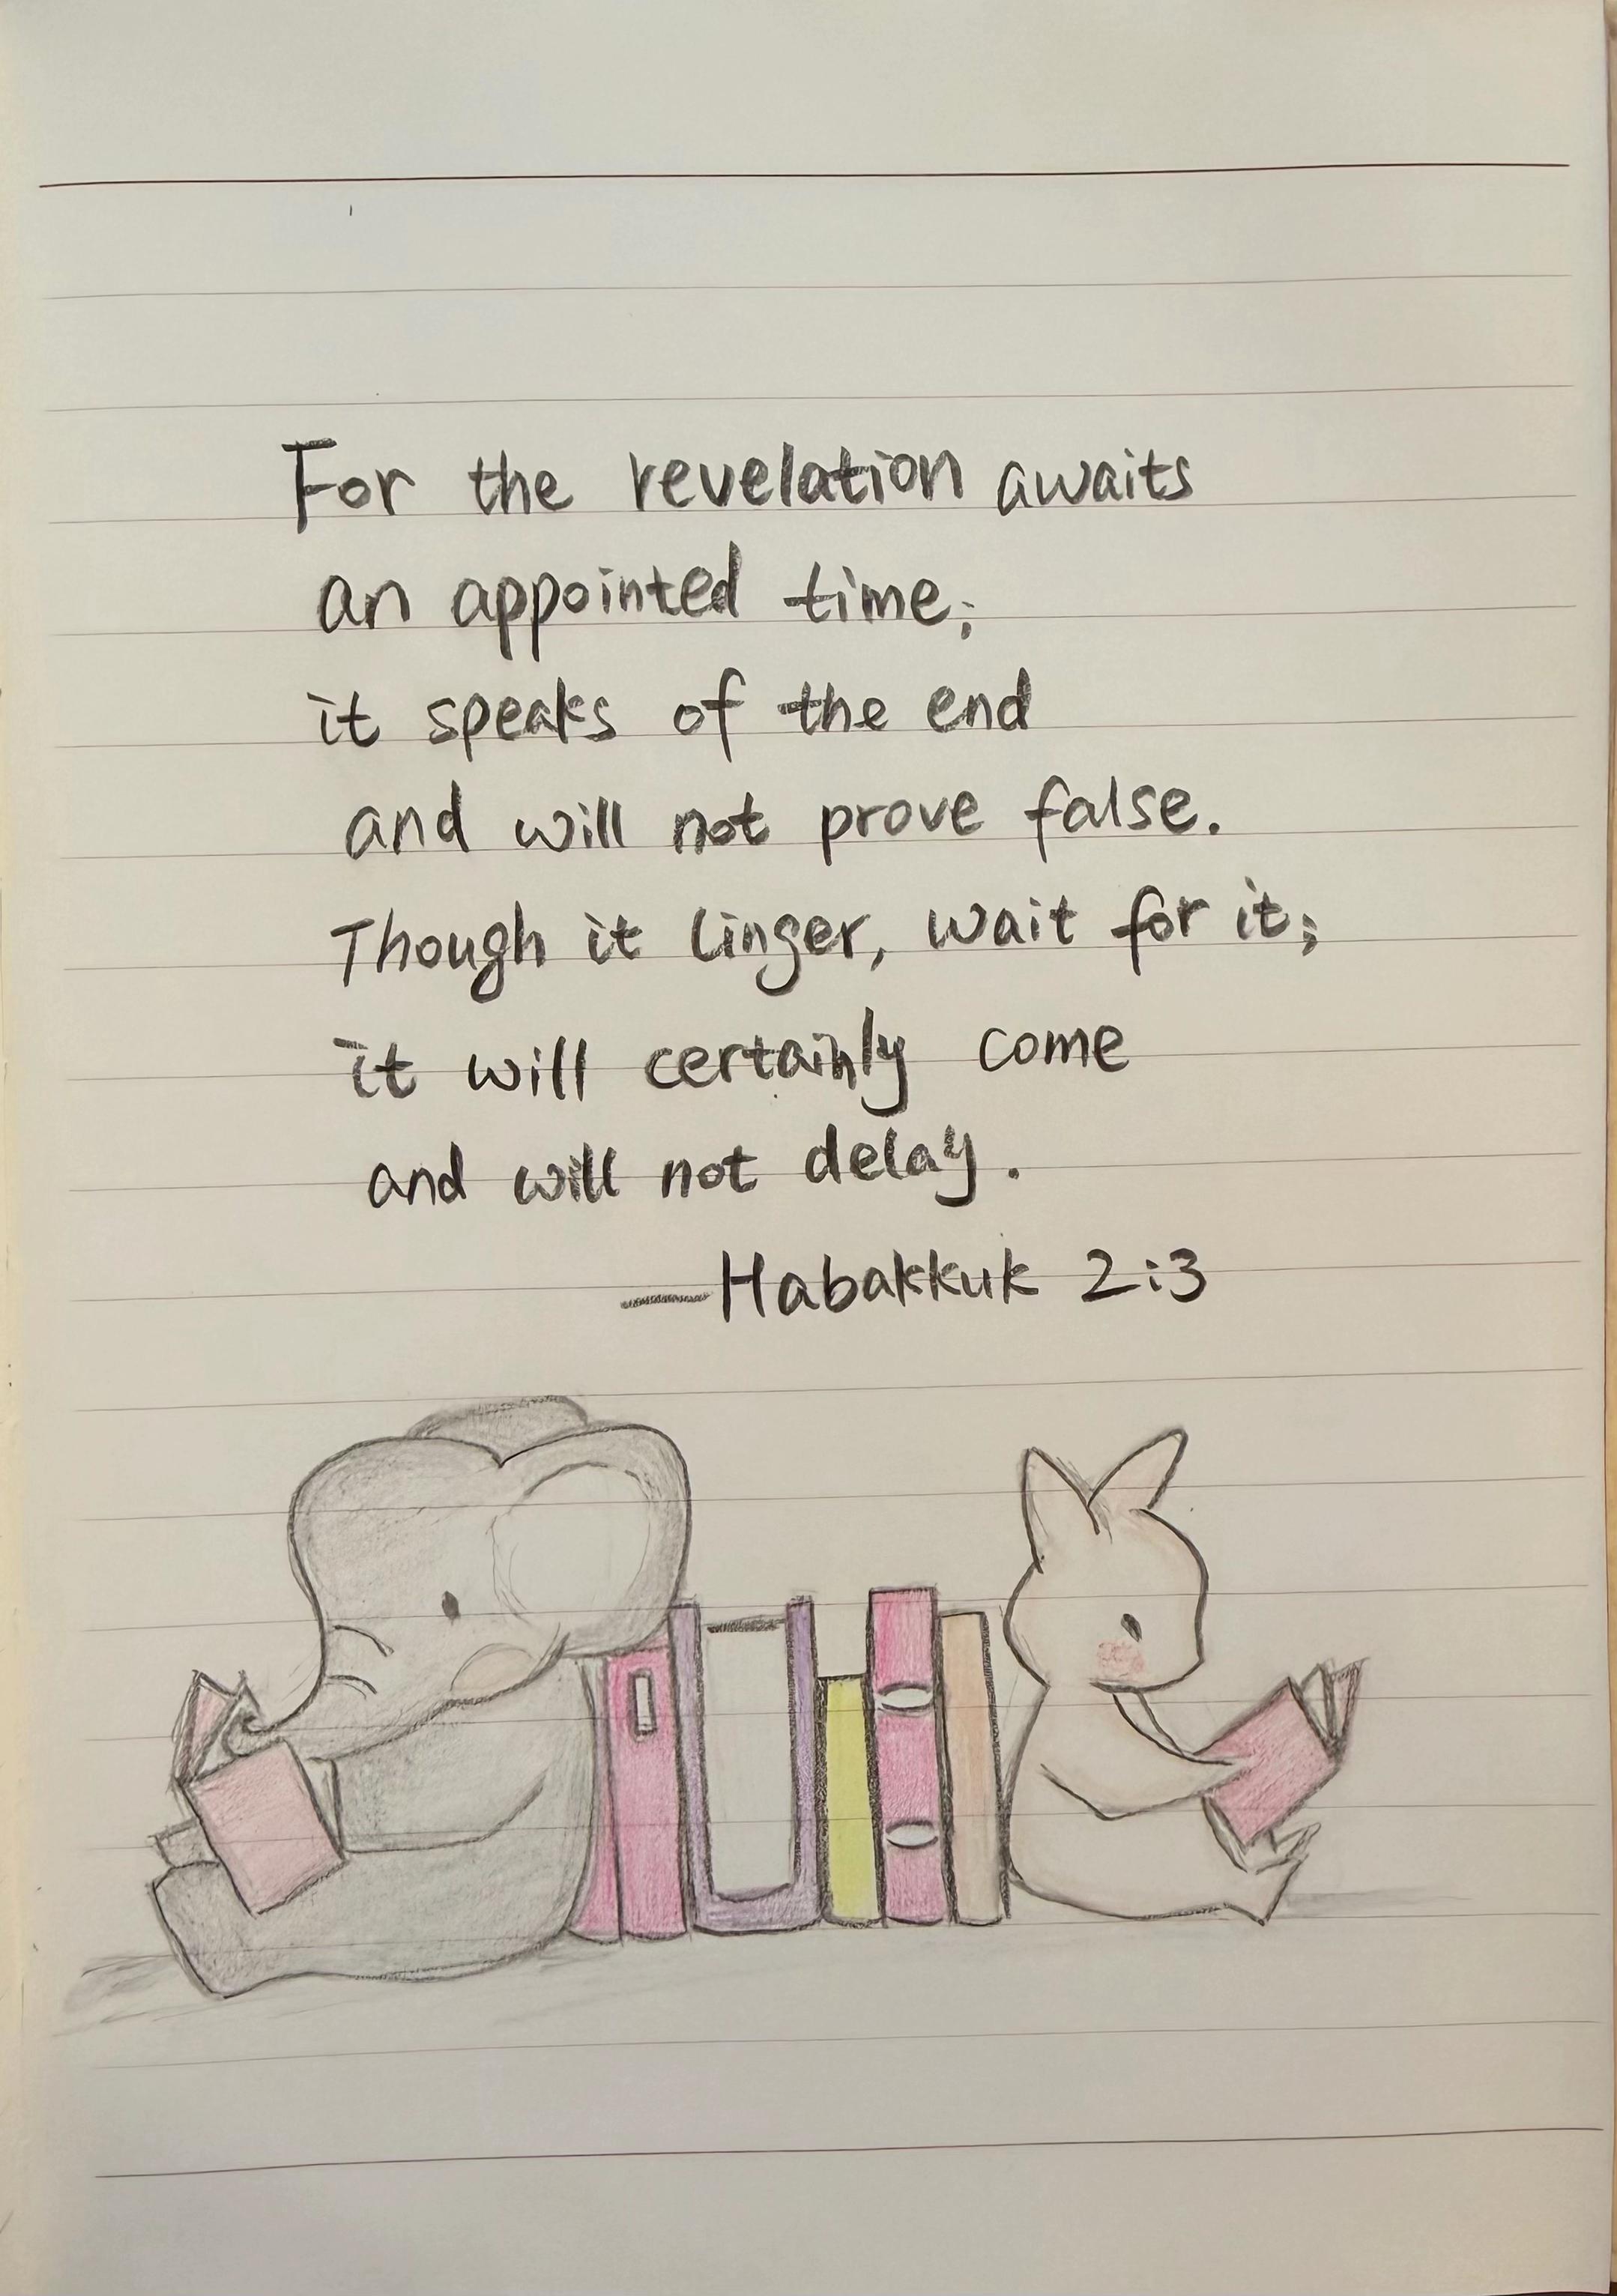 For the revelation awaits
an appointed time;
it speaks of the end
and will not prove false.
Though it linger, wait for it;
it will certainly come
and will not delay.
—Habakkuk 2:3